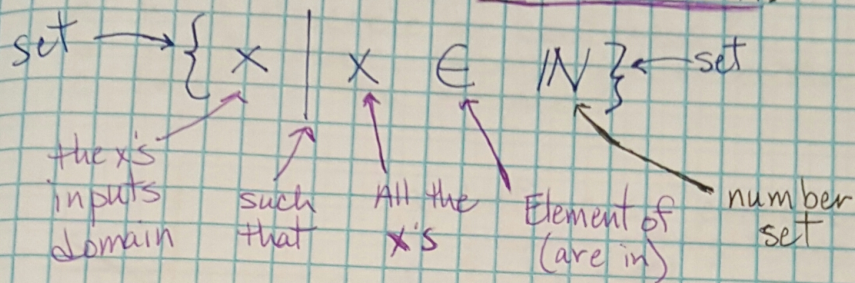 set → { x | x ∈ ℕ } ← set
the x's
inputs
domain
such
that
All the
x's
Element of
(are in)
number
set